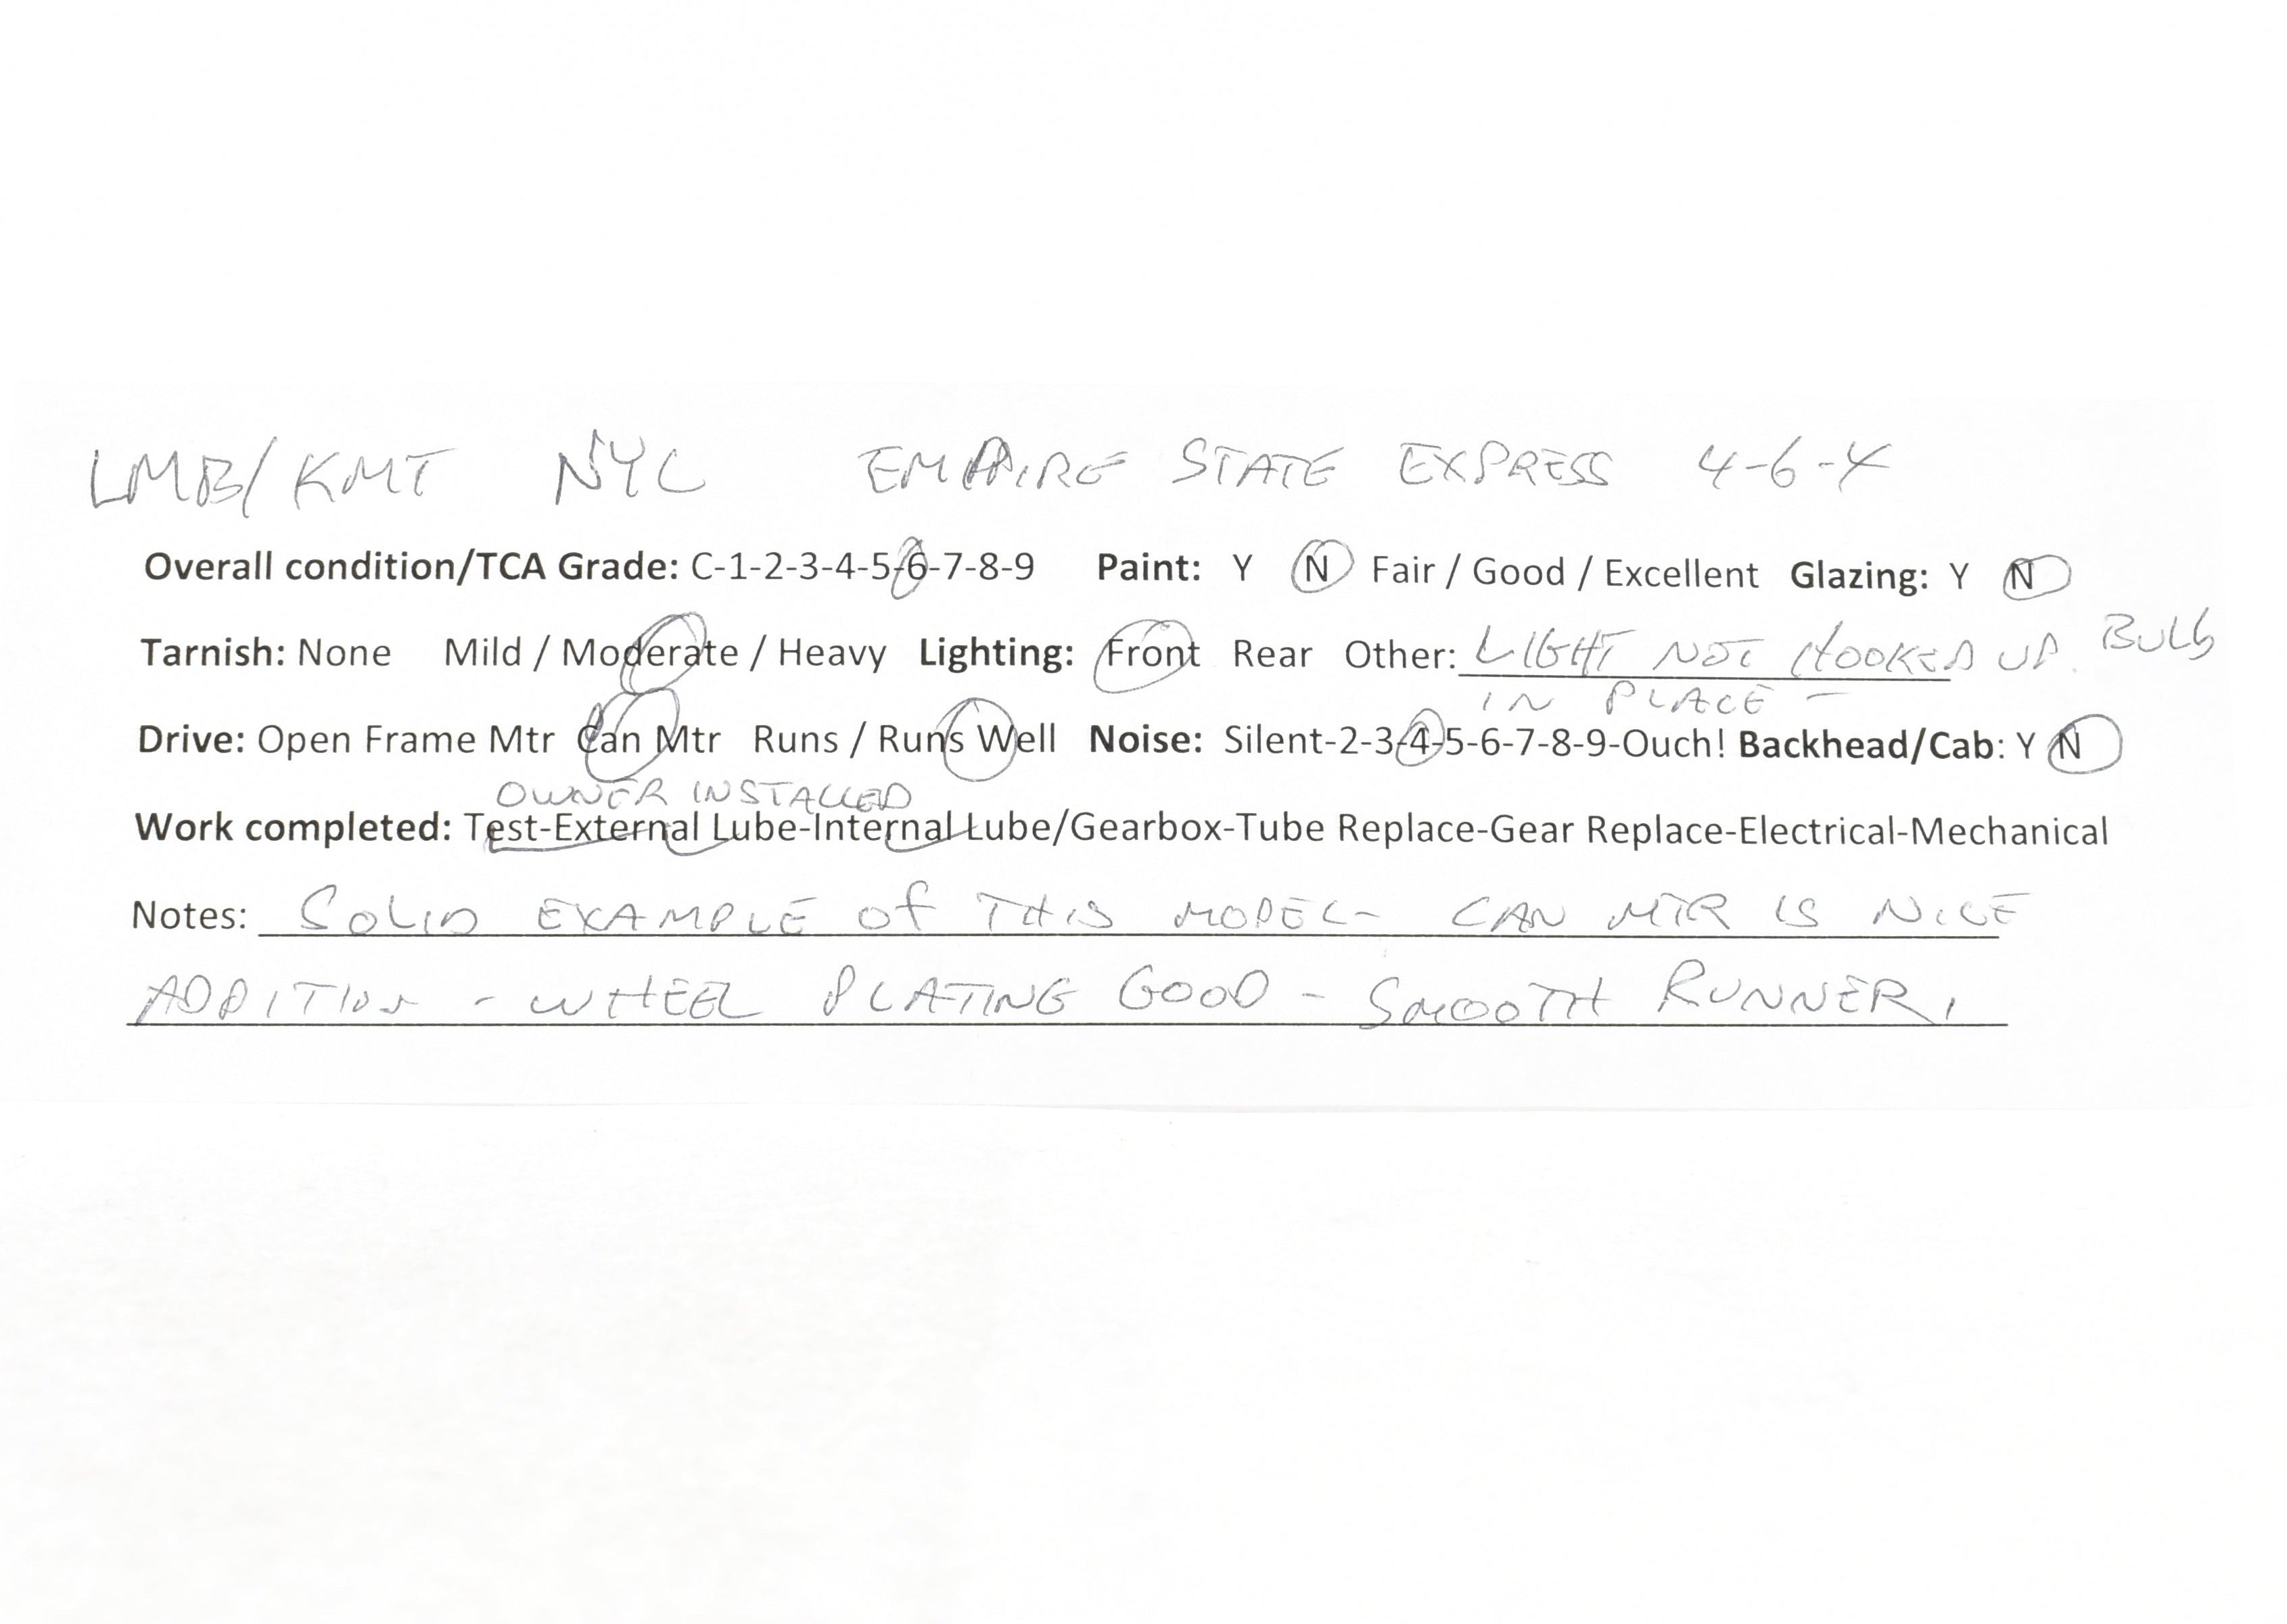 LMB/KMT NYC EMPIRE STATE EXPRESS 4-6-4
Overall condition/TCA Grade: C-1-2-3-4-5-6-7-8-9 Paint: Y N Fair / Good / Excellent Glazing: Y N
Tarnish: None Mild / Moderate / Heavy Lighting: Front Rear Other: LIGHT NOT HOOKED UP. BULB
IN PLACE -
Drive: Open Frame Mtr Can Mtr Runs / Runs Well Noise: Silent-2-3-4-5-6-7-8-9-Ouch! Backhead/Cab: Y N
OWNER INSTALLED
Work completed: Test-External Lube-Internal Lube/Gearbox-Tube Replace-Gear Replace-Electrical-Mechanical
Notes: SOLID EXAMPLE OF THIS MODEL- CAN MTR IS NICE
ADDITION - WHEEL PLATING GOOD - SMOOTH RUNNER.